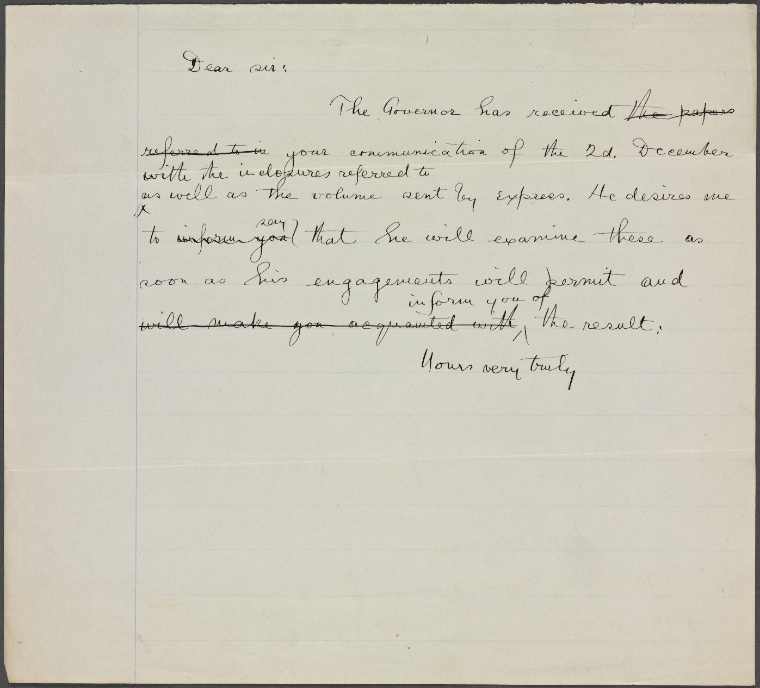 Dear sir:
The Governor has received the papers
referred to in your communication of the 2d. December
with the inclosures referred to
as well as the volume sent by express. He desires me
say
to inform you that he will examine these as
soon as his engagements will permit and
inform you of
will make you acquainted with the result.
Yours very truly